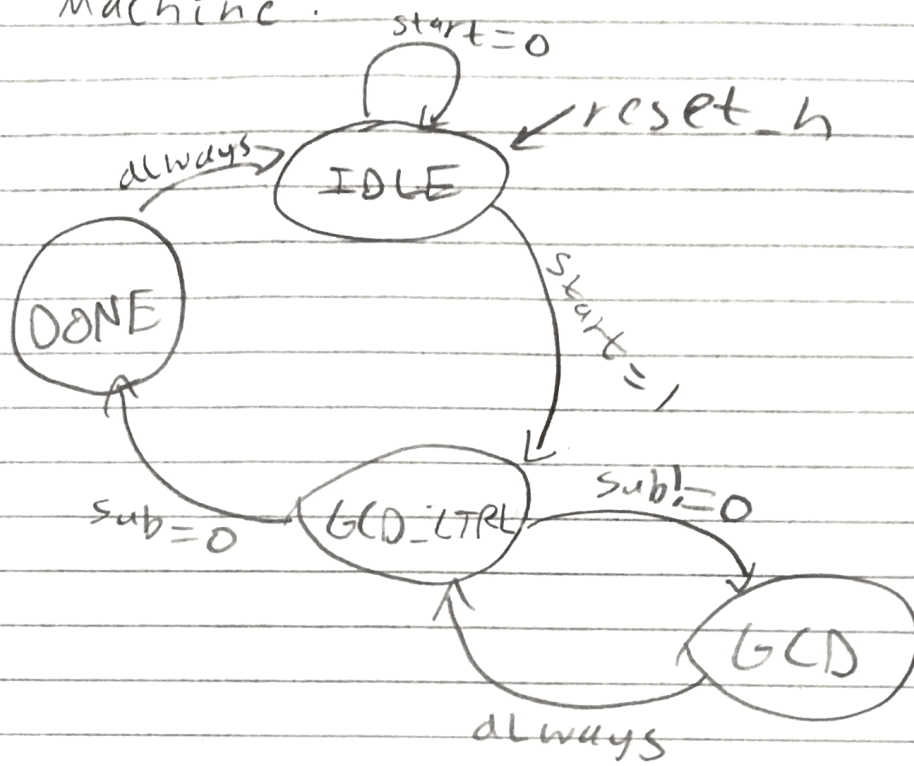 Machine.
start=0
reset_h
always
IDLE
start=1
DONE
sub!=0
GCD_CTRL
sub=0
GCD
always